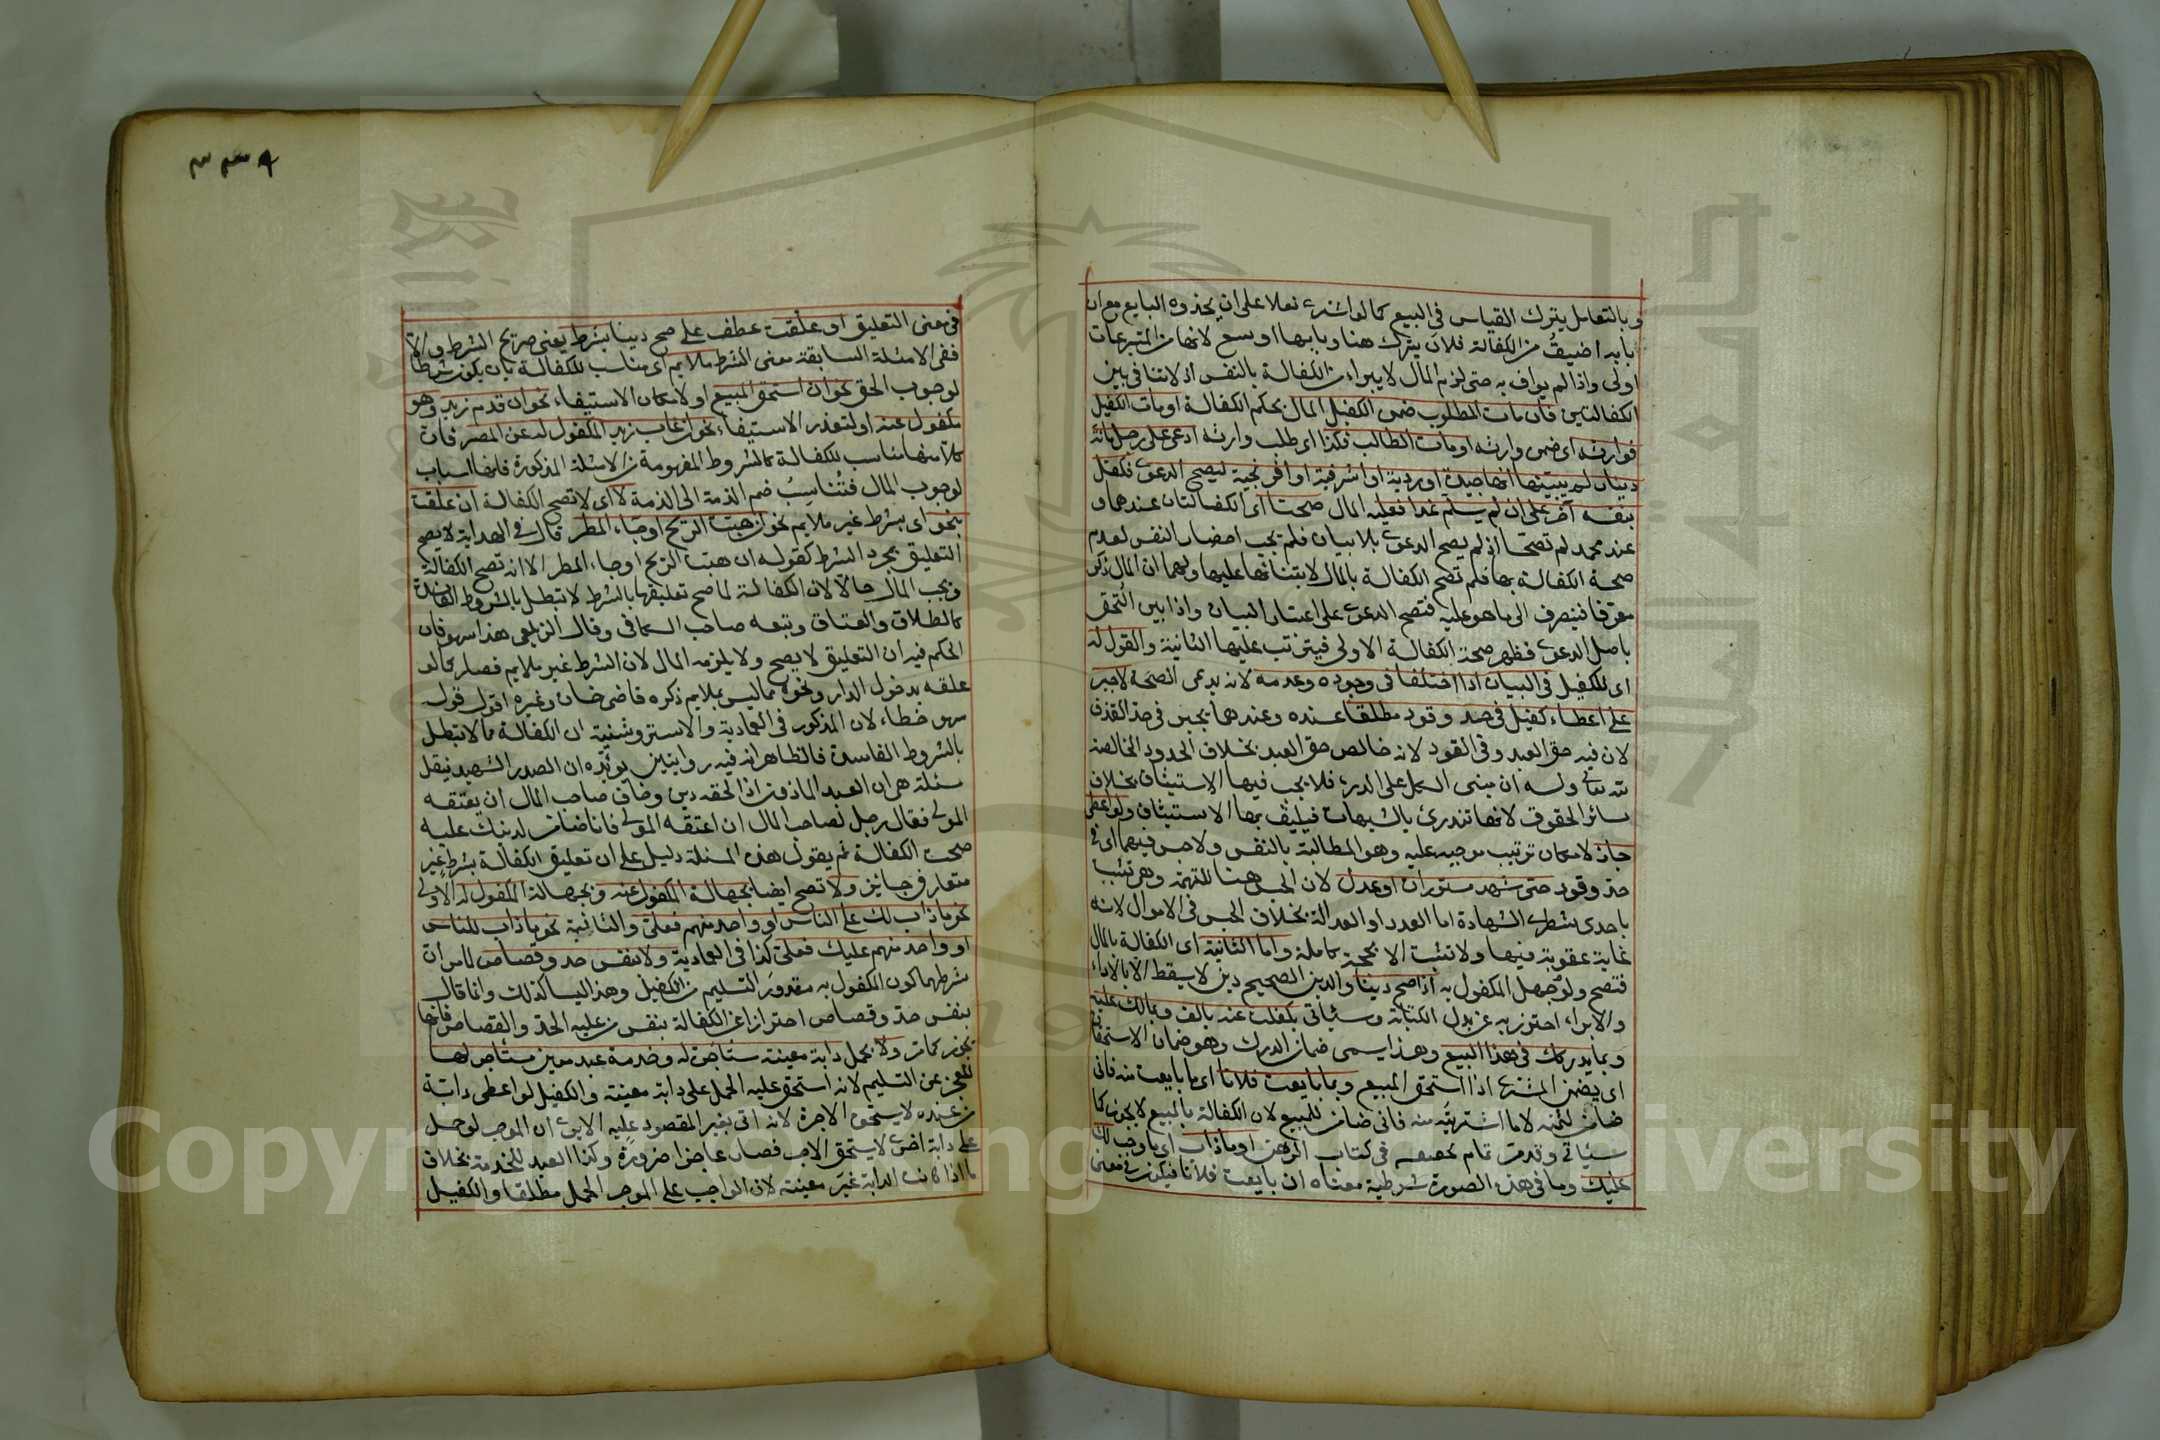 وبالتعامل يترك القياس في البيع كما لو اشترى نعلا على ان يحذوه البايع مع ان
بابه اضيق من الكفالة فلان يترك هنا وبابها اوسع لانها من التبرعات
اولى واذا لم يواف به حتى لزم المال لا يبراء من الكفالة بالنفس اذ لا تنافى بين
الكفالتين فان مات المطلوب ضمن الكفيل المال بحكم الكفالة او مات الكفيل
فوارثه اى ضمن وارثه او مات الطالب فكذا اى طلب وارثه ادعى على رجل مائة
دينار لم يبينها انها جيدة او ردية او اشرفية او افرنجية ليصح الدعوى فكفل
بنفسه آخر على ان لم يسلم غدا فعليه المال صحتا اى الكفالتان عندهما و
عند محمد لم تصحا اذ لم يصح الدعوى بلا بيان فلم يجب احضار النفس لعدم
صحة الكفالة بها فلم تصح الكفالة بالمال لابتنائها عليها ولهما ان المال ذكر
معرفا فينصرف الى ما هو عليه فتصح الدعوى على اعتبار البيان واذا بين التحق
باصل الدعوى فظهر صحة الكفالة الاولى فيترتب عليها الثانية والقول له
اى للكفيل في البيان اذا اختلفا فى وجوده وعدمه لانه يدعى الصحة لا جبر
على اعطاء كفيل فى حد وقود مطلقا عنده وعندهما يجبر فى حد القذف
لان فيه حق العبد وفى القود لانه خالص حق العبد بخلاف الحدود الخالصة
لله تعالى وله ان مبنى الكل على الدرء فلا يجب فيها الاستيثاق بخلاف
سائر الحقوق لانها لا تندرئ بالشبهات فيليق بها الاستيثاق ولو اعطى
جاز لامكان ترتيب موجبه عليه وهو المطالبة بالنفس ولا حبس فيهما اى فى
حد وقود حتى شهد مستوران او عدل لان الحبس هنا للتهمة وهى تثبت
باحدى شطرى الشهادة اما العدد او العدالة بخلاف الحبس فى الاموال لانه
غاية عقوبة فيها ولا تثبت الا بحجة كاملة واما الثانية اى الكفالة بالمال
فتصح ولو جهل المكفول به اذا صح دينا والدين الصحيح دين لا يسقط الا بالاداء
والابراء احترز به عن بدل الكتابة وسيأتى بكفلت عنه بالف وبمالك عليه
وبما يدركك فى هذا البيع وهذا يسمى ضمان الدرك وهو ضمان الاستحقاق
اى يضمن المشترى اذا استحق المبيع وبما بايعت فلانا اى ما بايعت منه فانى
ضامن لثمنه لا ما اشتريته منه فانى ضامن للمبيع لان الكفالة بالمبيع لا يجوز كما
سيأتى وقد مر تمام تحقيقه فى كتاب الرهن او ما ذاب اى ما وجب لك
عليك وما فى هذه الصورة شرطية معناه ان بايعت فلانا فيكون فى معنى
٣٣٩
فى معنى التعليق او علقت عطف على صح دينا بشرط يعنى صريح الشرط والا
ففى الامثلة السابقة معنى الشرط ملايم اى مناسب للكفالة بان يكون شرطا
لوجوب الحق نحو ان استحق المبيع او لامكان الاستيفاء نحو ان قدم زيد وهو
مكفول عنه او لتعذر الاستيفاء نحو ان غاب زيد المكفول له عن المصر فان
كلا منها مناسب للكفالة كالشروط المفهومة من الامثلة المذكورة فانها اسباب
لوجوب المال فتناسب ضم الذمة الى الذمة لا اى لا تصح الكفالة ان علقت
بنحو اى بشرط غير ملايم نحو ان هبت الريح او جاء المطر قال فى الهداية لا يصح
التعليق بمجرد الشرط كقوله ان هبت الريح او جاء المطر الا انه تصح الكفالة
ويجب المال حالا لان الكفالة لما صح تعليقها بالشرط لا تبطل بالشروط الفاسدة
كالطلاق والعتاق وتبعه صاحب الكافى وقال الزيلعى هذا سهو فان
الحكم فيه ان التعليق لا يصح ولا يلزمه المال لان الشرط غير ملايم فصار كما لو
علقه بدخول الدار ونحوه مما ليس بملايم ذكره قاضى خان وغيره اقول قوله
سهو خطاء لان المذكور فى العمادية والاستروشنية ان الكفالة مما لا تبطل
بالشروط الفاسدة فالظاهر انه فيه روايتين يؤيده ان الصدر الشهيد نقل
مسئلة هى ان العبد الماذون اذا لحقه دين وخاف صاحب المال ان يعتقه
المولى فقال رجل لصاحب المال ان اعتقه المولى فانا ضامن لدينك عليه
صحت الكفالة ثم يقول هذه المسئلة دليل على ان تعليق الكفالة بشرط غير
متعارف جايز ولا تصح ايضا بجهالة المكفول عنه وبجهالة المكفول له الاولى
نحو ما ذاب لك على الناس او واحد منهم فعلى والثانية نحو ما ذاب للناس
او واحد منهم عليك فعلى كذا فى العمادية ولا بنفس حد وقصاص لما مر ان
شرطهما كون المكفول به مقدور التسليم من الكفيل وهذا ليسا كذلك وانما قال
بنفس حد وقصاص احترازا عن الكفالة بنفس من عليه الحد والقصاص فانها
تجوز كما مر ولا بحمل دابة معينة مستأجرة له وخدمة عبد معين مستأجر لها
للعجز عن التسليم لانه استحق عليه الحمل على دابة معينة والكفيل لو اعطى دابة
من عنده لا يستحق الاجرة لانه اتى بغير المقصود عليه الا يرى ان الموجر لو حمل
على دابة اخرى لا يستحق الاجر فصار عاجزا ضرورة وكذا العبد للخدمة بخلاف
ما اذا كانت الدابة غير معينة لان الواجب على الموجر الحمل مطلقا والكفيل
Copyright © King Saud University